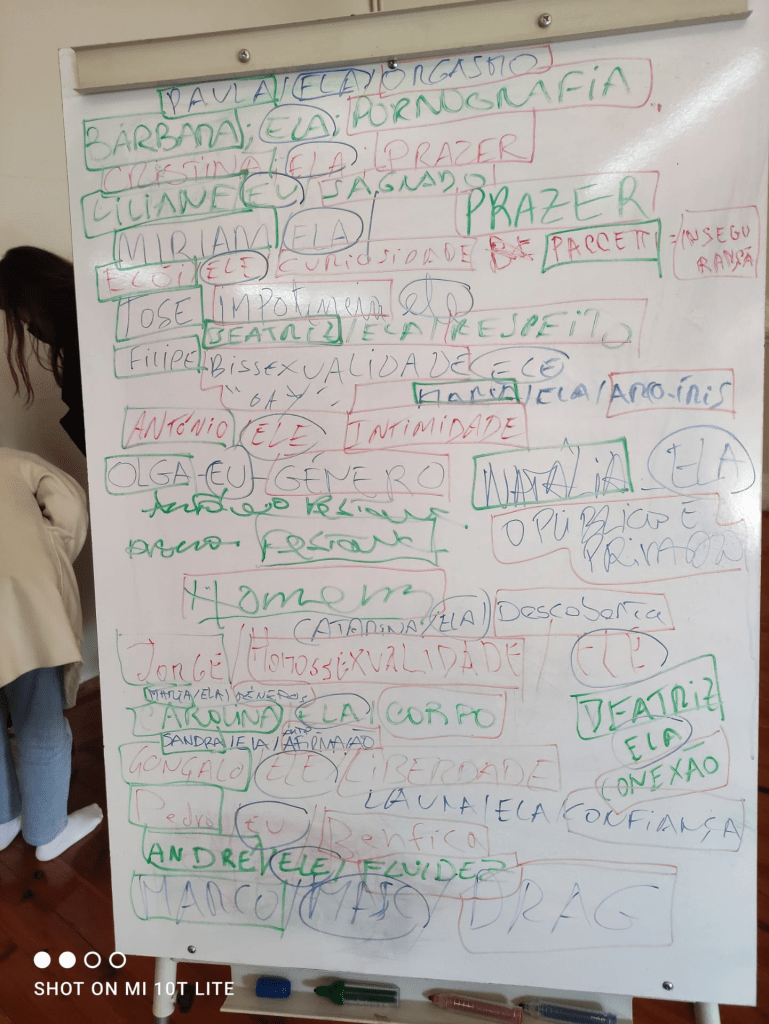 PAULA / ELA / ORGASMO
BÁRBARA; ELA; PORNOGRAFIA
CRISTINA; ELA; PRAZER
LILIANE EU SAGRADO
PRAZER
MIRIAM / ELA /
ELÓI ELE CURIOSIDADE
= INSEGURANÇA
JOSE ele
BEATRIZ / ELA / RESPEITO
Filipe BISSEXUALIDADE ELE
"GAY"
MARIA / ELA / ARCO-ÍRIS
ANTÓNIO / ELE INTIMIDADE
OLGA - EU - GÉNERO
NATÁLIA - ELA
O PÚBLICO E
PRIVADO
Homem
CATARINA / ELA / Descoberta
JORGE / HOMOSSEXUALIDADE / ELE
MARTA / ELA / GÉNEROS
CAROLINA ELA / CORPO
BEATRIZ
ELA
CONEXÃO
SANDRA / ElA /
GONÇALO ELE LIBERDADE
LAURA / ELA / CONFIANÇA
Pedro EU / Benfica
ANDRÉ / ELE / FLUIDEZ
MARCO / / DRAG
SHOT ON MI 10T LITE